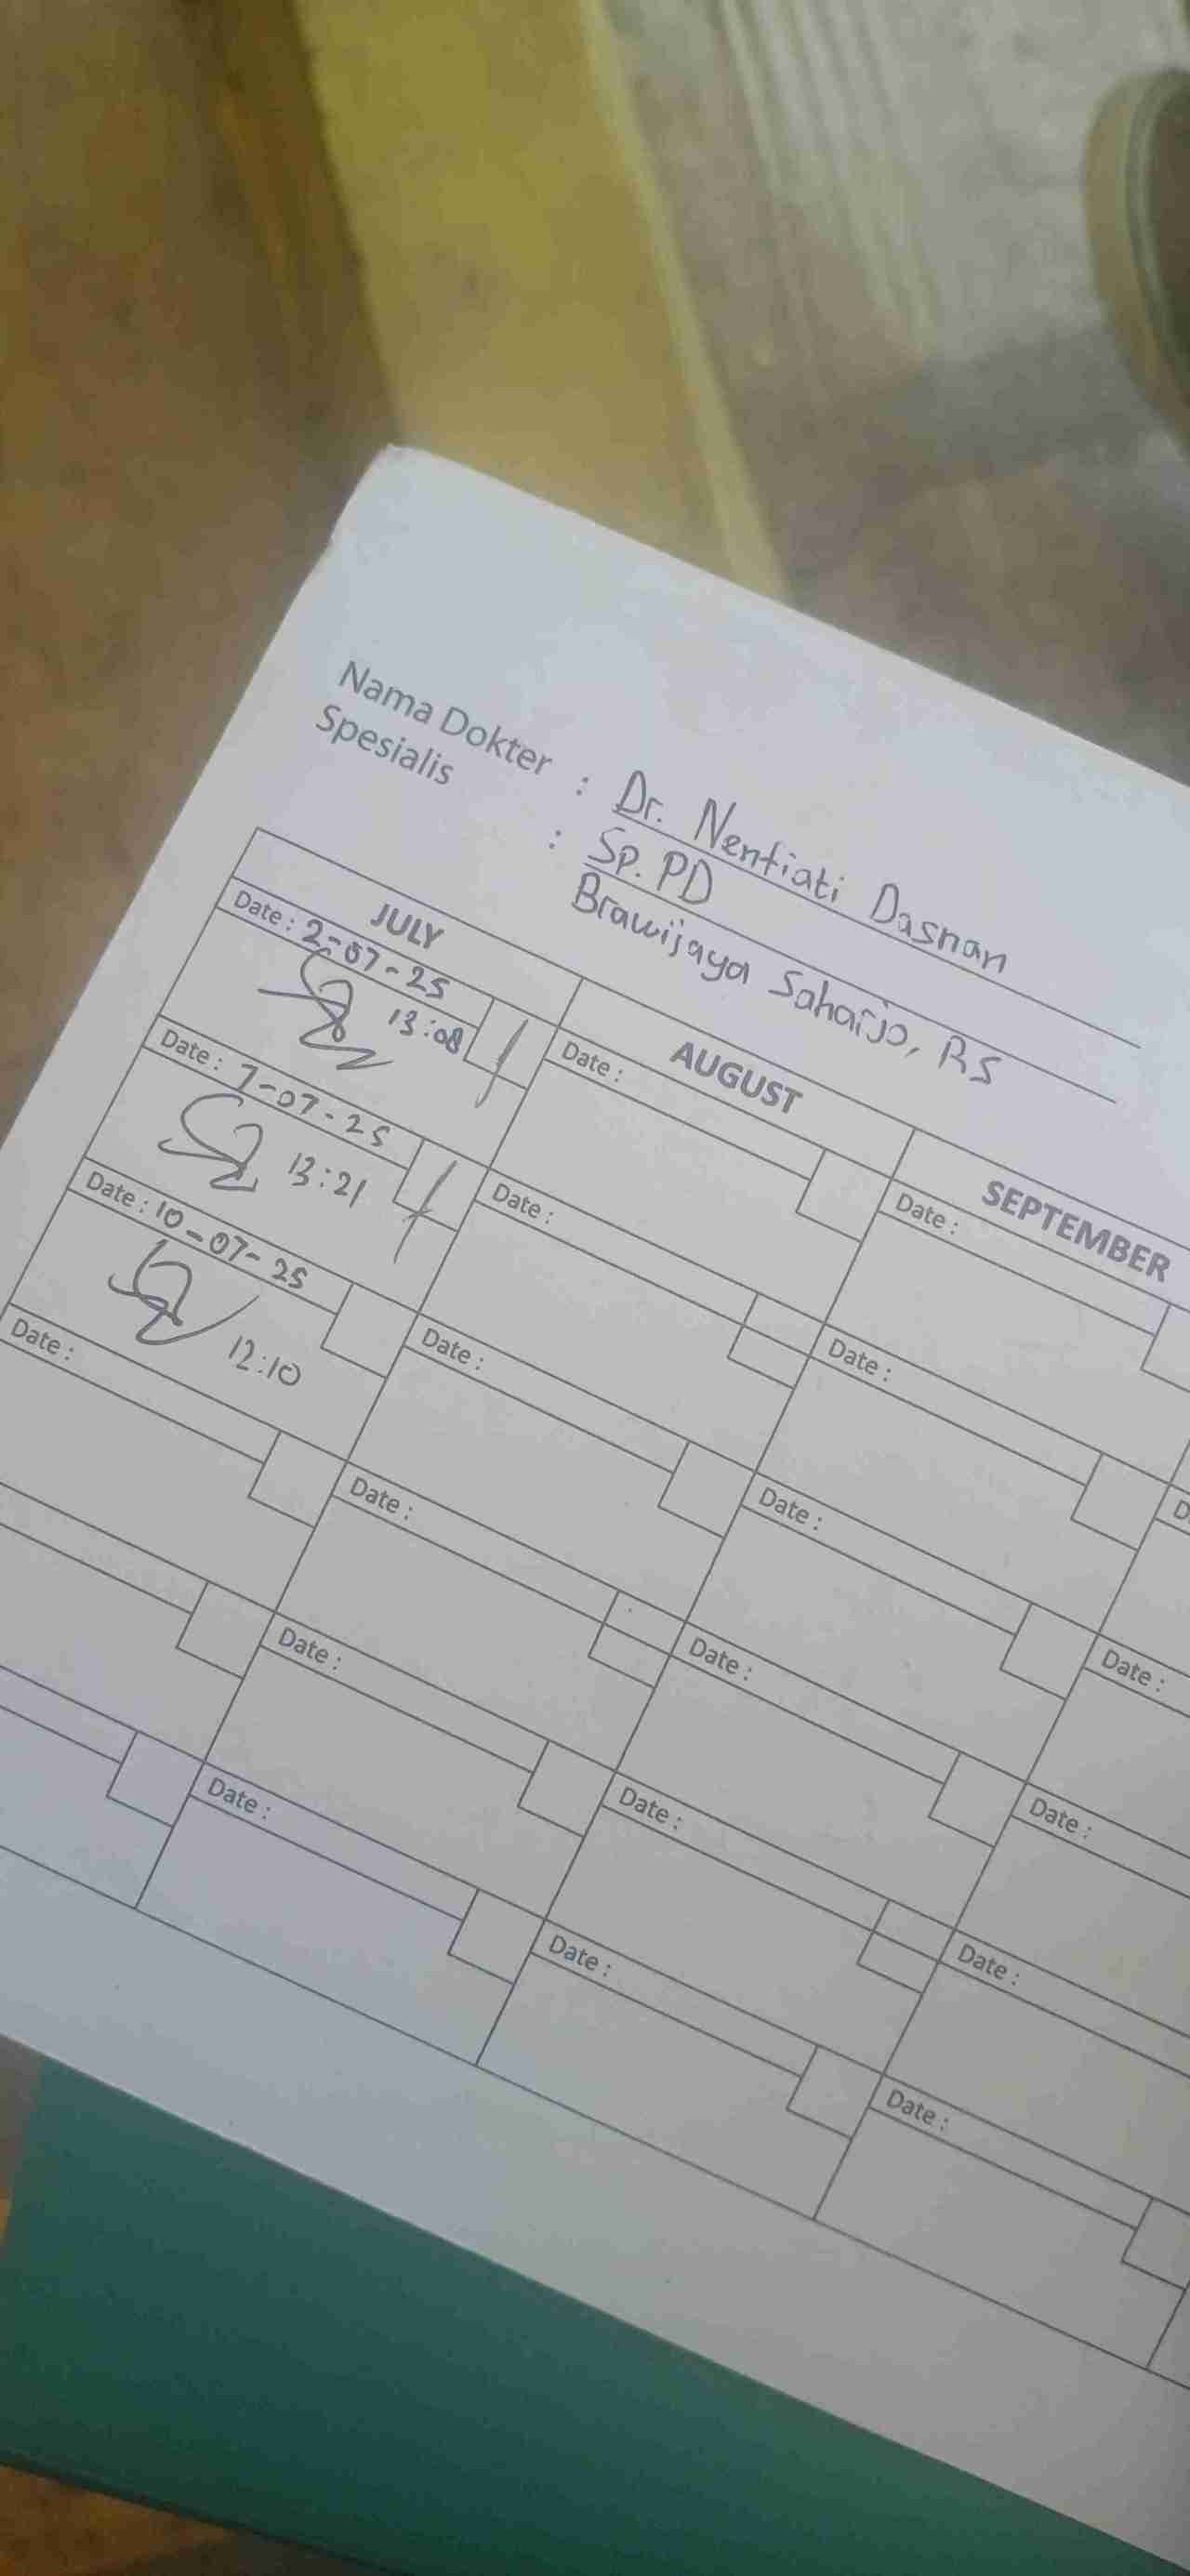 Nama Dokter : Dr. Nentiati Dasnan
Spesialis : Sp. PD
Brawijaya Saharjo, RS
JULY AUGUST SEPTEMBER
Date : 2-07-25 Date : Date :
13:08
Date : 7-07-25 Date : Date :
13:21
Date : 10-07-25 Date : Date :
12:10
Date : Date : Date : Date :
Date : Date : Date :
Date : Date : Date :